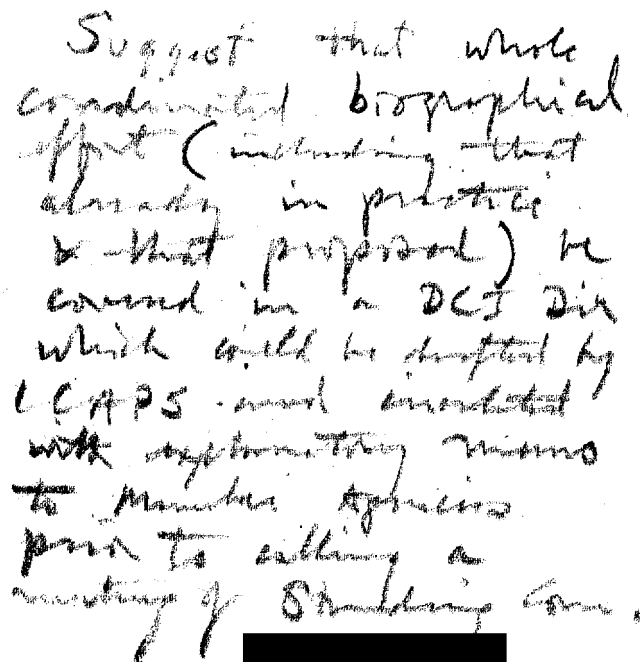 Suggest that whole
coordinated biographical
effort (including that
already in practice
& that proposed) be
covered in a DCI Dir
which could be drafted by
ICAPS and circulated
with explanatory memo
to Member Agencies
prior to calling a
meeting of Standing Com.